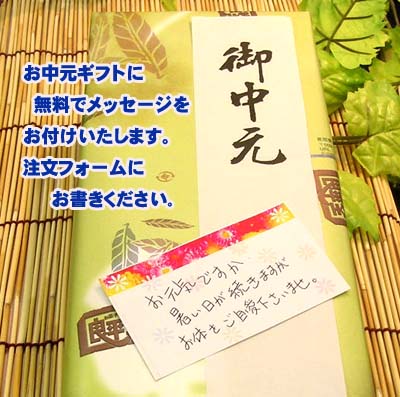 お中元ギフトに
無料でメッセージを
お付けいたします。
注文フォームに
お書きください。
御中元
お元気ですか
暑い日が続きますが
お体をご自愛下さいませ。